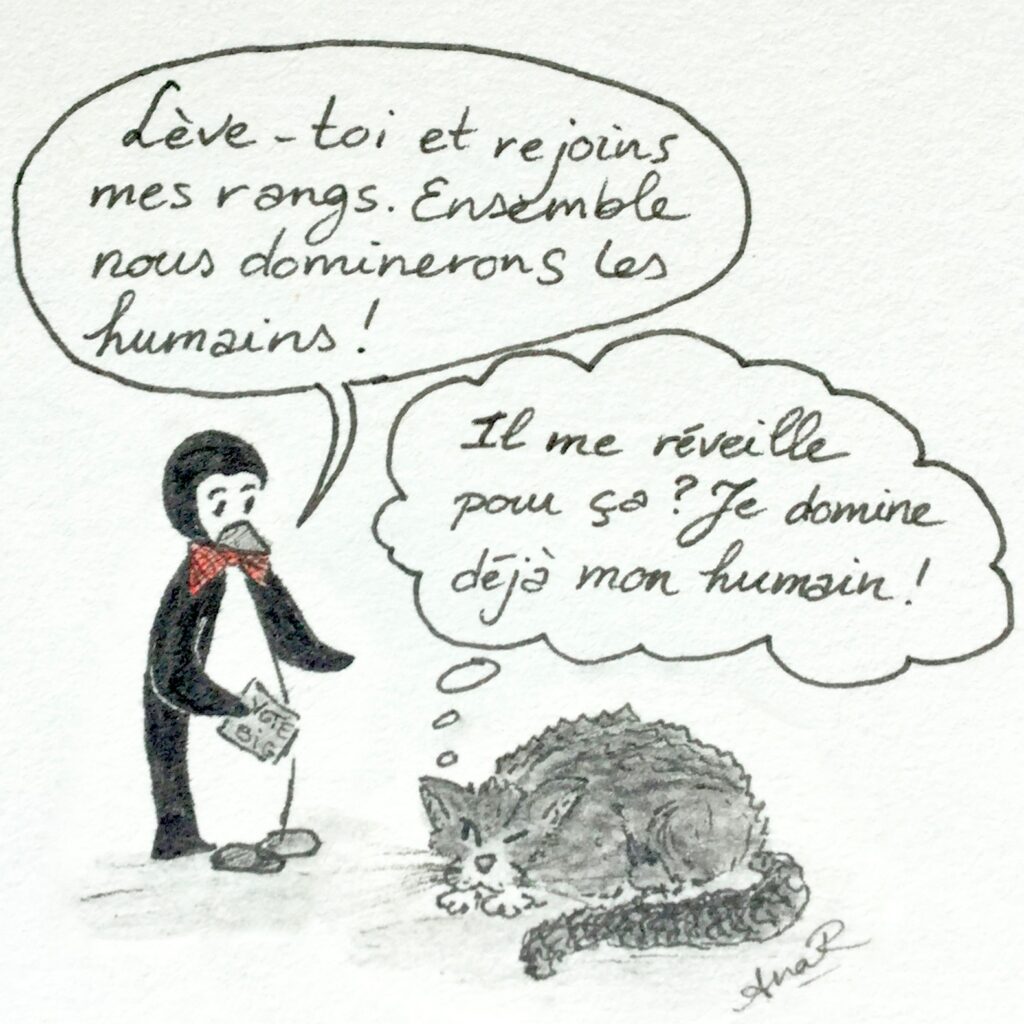 Lève-toi et rejoins
mes rangs. Ensemble
nous dominerons les
humains !
Il me réveille
pour ça ? Je domine
déjà mon humain !
VOTE
BIG
AnaR